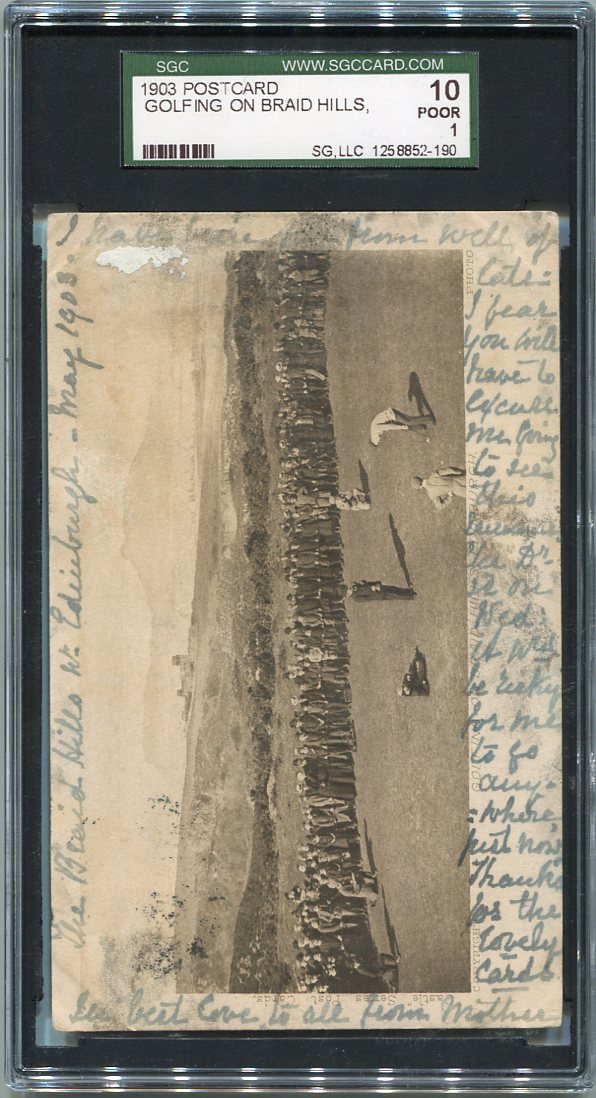 SGC WWW.SGCCARD.COM
1903 POSTCARD 10
GOLFING ON BRAID HILLS, POOR
1
SG,LLC 1258852-190
I have from well of
late.
I fear
you will
have to
excuse
me going
to see
this
the Dr.
on
Wed
it wd
be risky
for me
to go
any-
=where
just now
Thanks
for the
lovely
cards
The Braid Hills nr. Edinburgh - May 1903.
best love to all from Mother
PHOTO
COPYRIGHT
Castle" Series Post Cards.